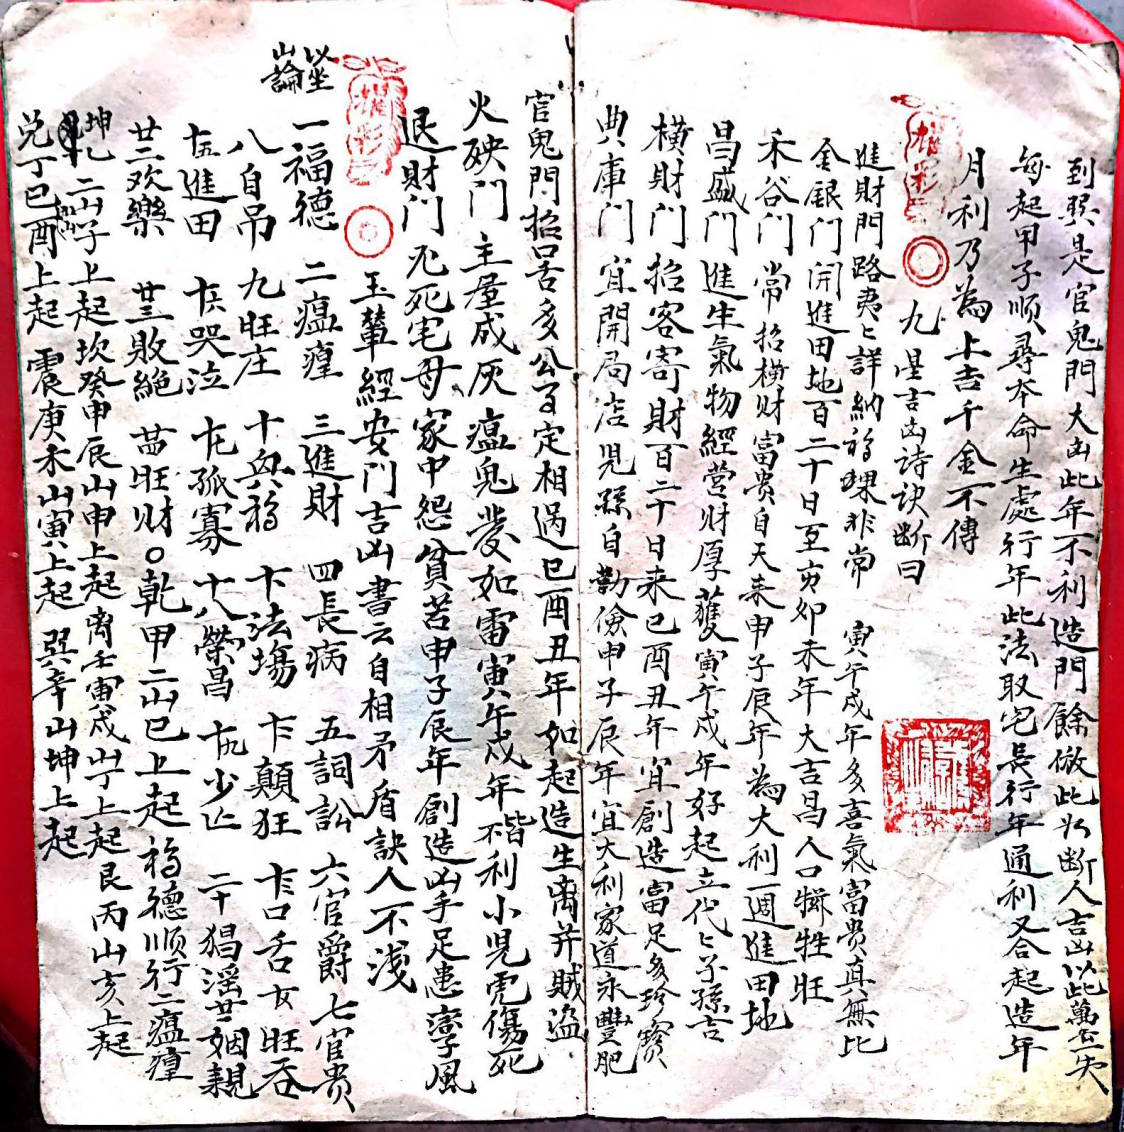 到艮是官鬼門大凶此年不利造門餘倣此於断人吉凶以此萬无一失
每起甲子順尋本命生處行年此法取宅長行年通利又合起造年
月利乃為上吉千金不傳
九星吉凶诗诀断曰
進財門路要詳納福禄非常 寅午戌年多喜氣富贵真無比
金銀門開進田地百二十日至亥卯未年大吉昌人口犠牲旺
禾谷门常招横财富贵自天来申子辰年為大利一週進田地
昌盛门進生氣物經营财厚獲寅午戌年好起立代々子孫吉
横財门招客寄財百二十日来巳酉丑年宜創造富足多珍寳
典庫门宜開局店児孫自勤儉申子辰年宜大利家道永豐肥
官鬼門招是多公事定相遇巳酉丑年如起造生离并贼盗
火殃門主屋成灰瘟鬼發如雷寅午戌年不利小児虎傷死
退財门死宅母家中怨貧苦申子辰年創造凶手足患瘋風
玉輦經安门吉凶書云自相矛盾訣人不浅
以坐山論
一福德 二瘟瘟 三進財 四長病 五詞訟 六官爵 七官贵
八自吊 九旺庄 十興福 十一法場 十二顛狂 十三口舌 十四旺蚕
十五進田 十六哭泣 十七孤寡 十八榮昌 十九少亡 二十猖淫 廿一姻親
廿二欢樂 廿三敗絶 廿四旺财〇乾甲二山巳上起福德順行二瘟瘟
坤乙二山子上起坎癸申辰山申上起离壬寅戌山丁上起艮丙山亥上起
兑丁巳酉上起 震庚未山寅上起 巽辛山坤上起